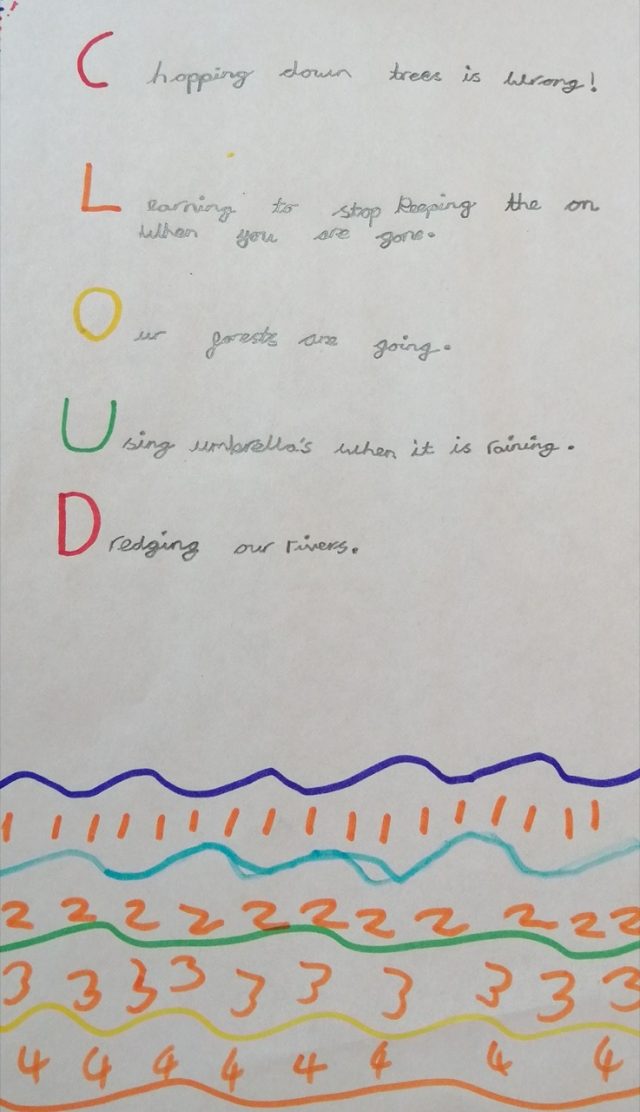 Chopping down trees is wrong!
Learning to stop keeping the on
when you are gone.
Our forests are going.
Using umbrella's when it is raining.
Dredging our rivers.
1 1 1 1 1 1 1 1 1 1 1 1 1 1 1 1 1
2 2 2 2 2 2 2 2 2 2 2
3 3 3 3 3 3 3 3 3 3
4 4 4 4 4 4 4 4